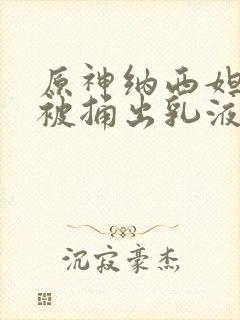 原神纳西妲
被捅出乳液
沉寂豪杰